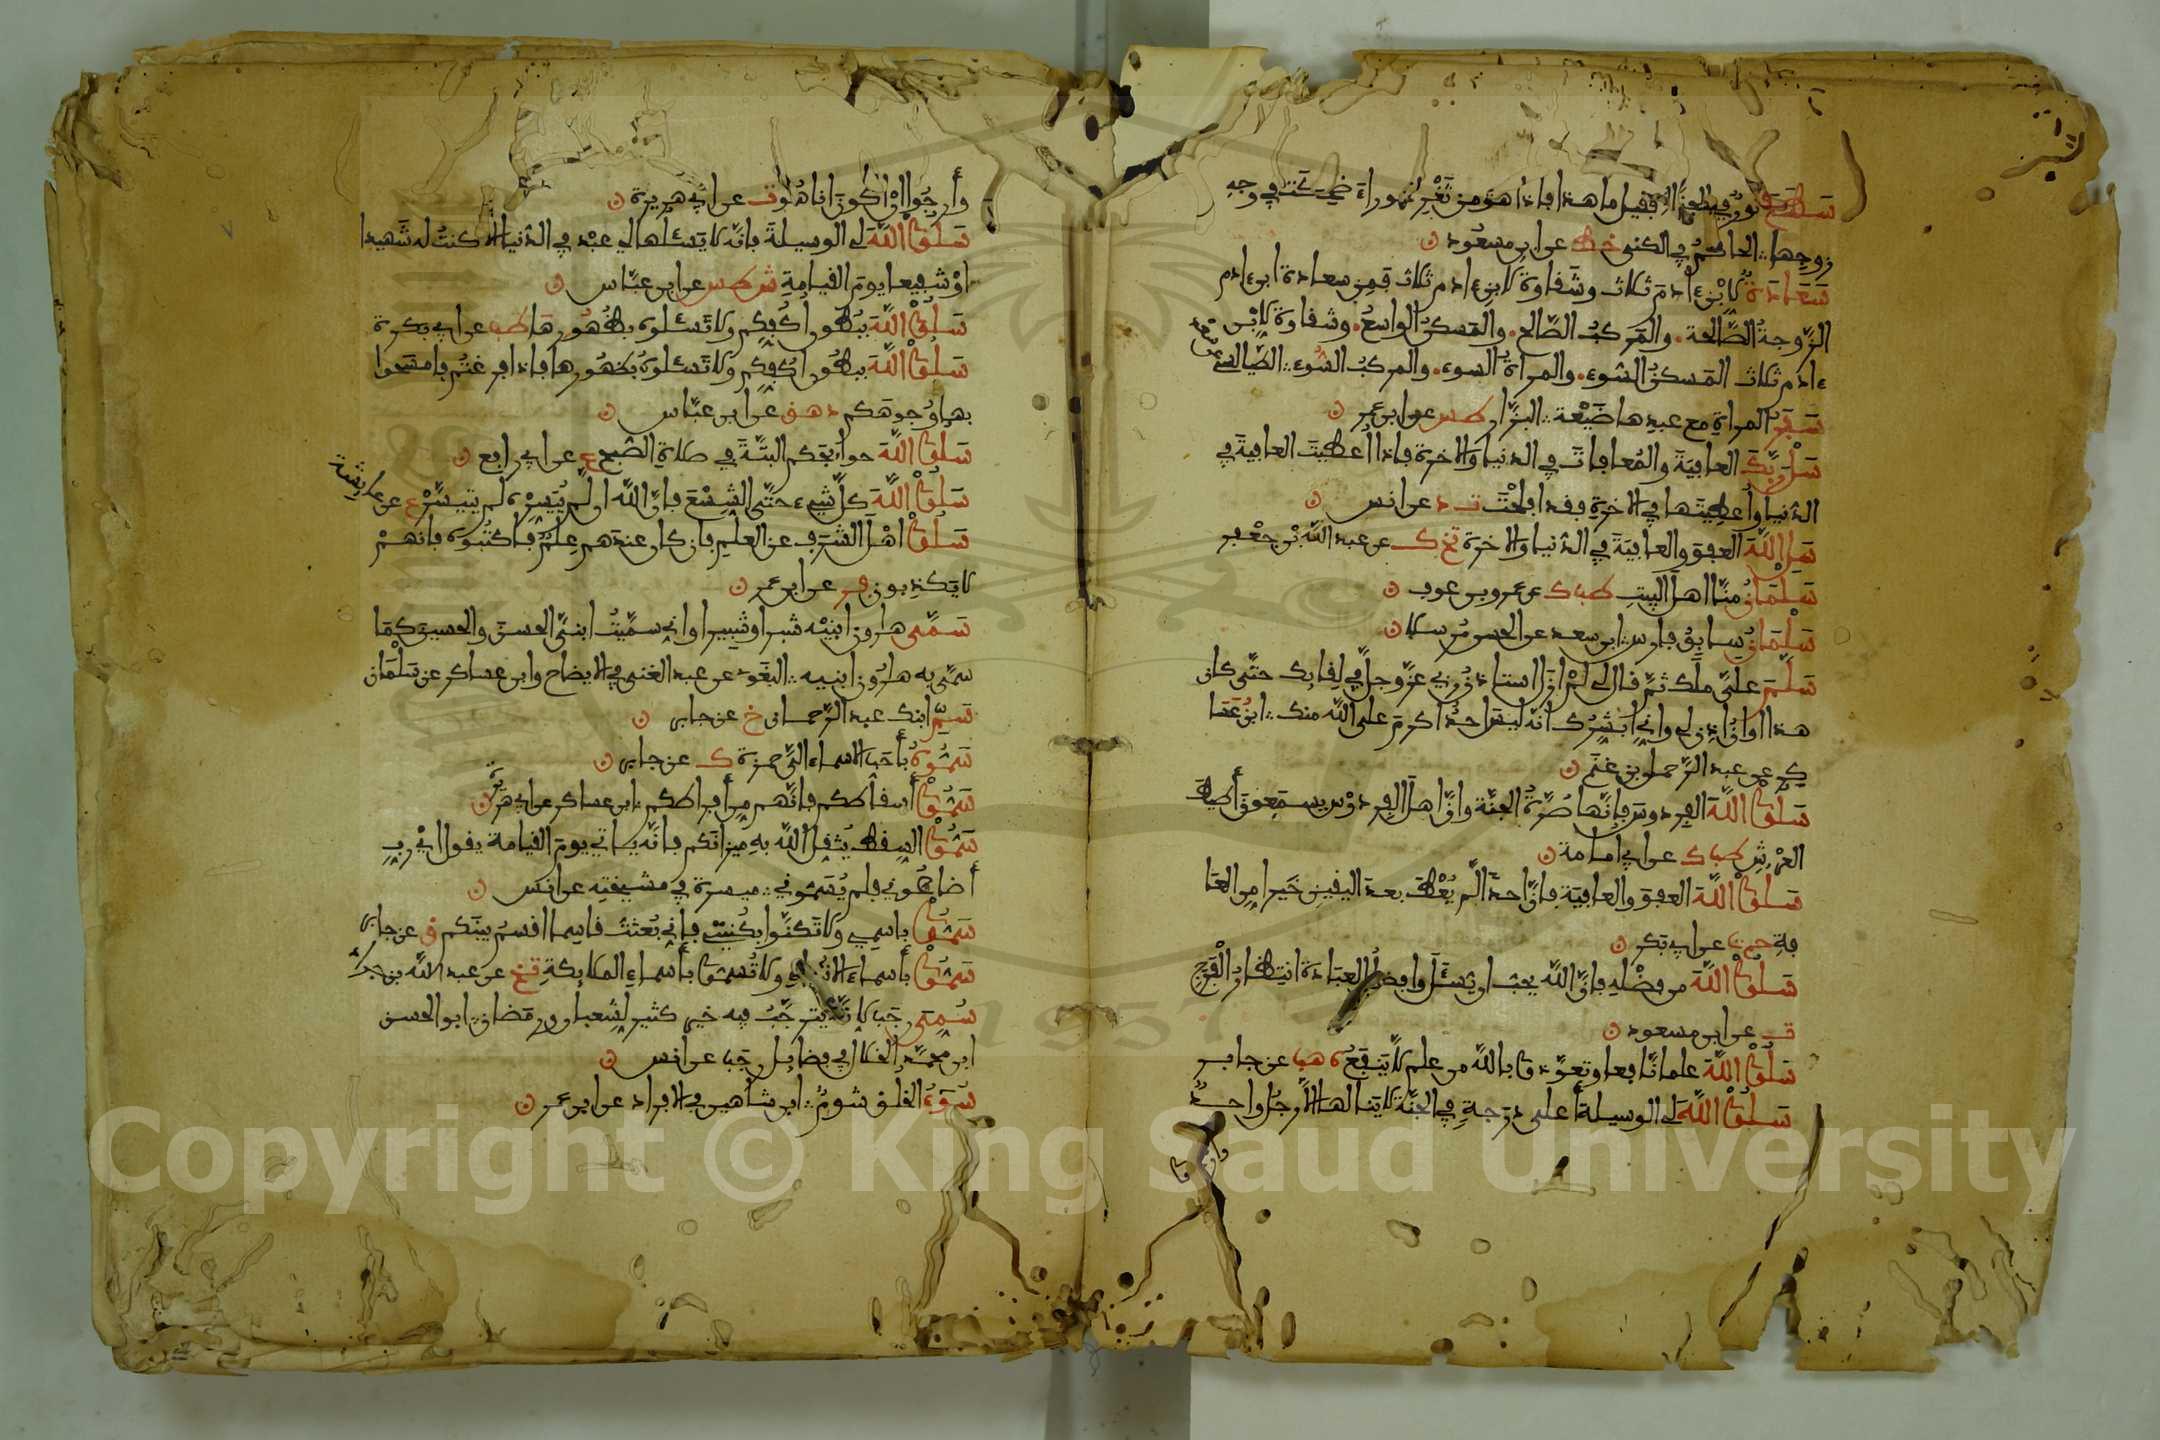 سَطَعَ نورٌ في الجنة فقيل ما هذا فإذا هو من ثَغْرِ حوراء ضحكت في وجه
زوجها الحاكم في الكنى خط عن ابن مسعود
سَعَادَةٌ لابْنِ ءادمَ ثلاث وشَقاوة لابن ءادم ثلاث فمن سعادة ابن ءادم
الزَّوجةُ الصَّالحة والمَركبُ الصَّالح والمَسكنُ الواسعُ وشقاوة لابن
ءادم ثلاث المَسكنُ السُّوء والمرأةُ السوء والمركبُ السُّوء الطيالسي
عن سعد
سَفَرُ المرأةِ مع عبدها ضَيْعة البزَّار طس عن ابن عمر
سَلْ رَبَّكَ العافيَةَ والمُعافاةَ في الدنيا والاخرة فإذا أُعطيتَ العافيةَ في
الدُّنيا وأُعطيتَها في الاخرةِ فقد افلحْتَ ت ه عن انس
سَلِ اللَّهَ العفوَ والعافيَةَ في الدُّنيا والاخرة تخ ك عن عبد اللَّه بْن جعْفر
سَلْمَانُ مِنَّا اهلَ البيتِ طب ك عن عمرو بن عوف
سَلْمَانُ سابِقُ فارس ابن سعد عن الحسن مُرسلا
سَلَّمَ عليَّ مَلَك ثمَّ قال لي لمْ ازَل استاذنُ ربي عزَّ وجلَّ في لِقائك حتَّى كان
هذا اوانُ اذن لي واني ابَشِّرُك انَّه ليسَ احدٌ اكرمَ على اللَّه منك ابنُ عَسا
كر عن عبد الرَّحمان بن غَنم
سَلُوا اللَّهَ الفِردوسَ فإنَّها سُرَّةُ الجنَّة وانَّ اهلَ الفِردوْس يسمَعونَ أطيطَ
العَرْشِ طب ك عن ابي امامة
سَلُوا اللَّهَ العفوَ والعافيَة فإنَّ احدًا لَم يُعْطَ بعدَ اليقين خَيرا من العا
فيةِ حم ت عن ابي بَكر
سَلُوا اللَّهَ من فضْلهِ فإنَّ اللَّه يحبّ ان يُسْئَلَ وافضلُ العِبَادَة انتِظارُ الْفَرَج
ت عن ابن مسعود
سَلُوا اللَّهَ علما نَّافعا وتعوَّذوا باللَّه من علم لاَّ يَنفَعُ ه هب عن جابر
سَلُوا اللَّهَ لي الوسيلة أعلى درَجةٍ في الجنَّة لا يَنالها الاَّ رجُل واحدٌ
وأرجُوا ان أكونَ انا هُوَ ت عن ابي هريرة
سَلُوا اللَّهَ لي الوسيلةَ فإنَّه لا يَسئَلها لي عبْد في الدُّنيا الا كنتُ له شَهيدا
اوْ شفيعا يومَ القيامةِ ش طس عن ابن عبَّاس
سَلُوا اللَّهَ ببُطون أكُفِّكم ولا تَسئَلوه بظُهُورهَا طب عن ابي بكرة
سَلُوا اللَّهَ ببطُون اكُفِّكم ولا تَسئَلوهُ بظهُورها فإذا فرغتُم فامسَحوا
بها وُجوهَكم د هق عن ابن عبَّاس
سَلُوا اللَّهَ حوائجَكم البتَّةَ في صلاةِ الصُّبح ع عن ابي رافع
سَلُوا اللَّهَ كلَّ شيء حتَّى الشِّسْعَ فإنَّ اللَّه ان لَّم يُيَسِّرْه لم يتيسَّرْ ع عن عائشة
سَلُوا اهْلَ الشَّرَفِ عن العلم فإن كان عندَهم عِلمٌ فاكتُبوهُ فإنهمْ
لا يَكذِبون فر عن ابن عمر
سَمَّى هارون ابنَيْه شبرا وشَبيرا واني سمَّيتُ ابنَيَّ الحسنَ والحسينَ كما
سمَّى به هارُون ابنيه البَغوي عن عبد الغني في الايضاح وابن عساكر عن سَلْمَان
سَمِّ ابنك عبد الرَّحمان خ عن جابر
سَمُّوهُ بأحَبِّ الاسماء اليَّ حمزة ك عن جابر
سَمُّوا أسقاطكم فإنَّهم من أفراطكم ابن عساكر عن ابي هريرة
سَمُّوا السِّقط يُثقِل اللَّه بهِ ميزانَكم فإنَّه ياتي يومَ القيامة يقول ايْ ربِّ
أضاعُوني فلم يُسَمُّوني ميسرة في مشيخته عن انس
سَمُّوا باسمِي ولا تَكنَّوا بكُنيتي فإني بُعثتُ قاسِما اقسمُ بينَكم ق عن جابر
سَمُّوا بأسماء الانبياء ولا تُسمُّوا بأسماءِ الملائِكةِ تخ عن عبد اللَّه بن جراد
سُمِّيَ رجَب لانَّه يترجَّبُ فيه خير كثير لشعبان ورمَضان ابو الحسن
ابن محمَّد الخلال في فضائل رجَب عن انس
سُوءُ الخلُق شومٌ ابن شاهين في الافراد عن ابن عمر
Copyright © King Saud University
1957